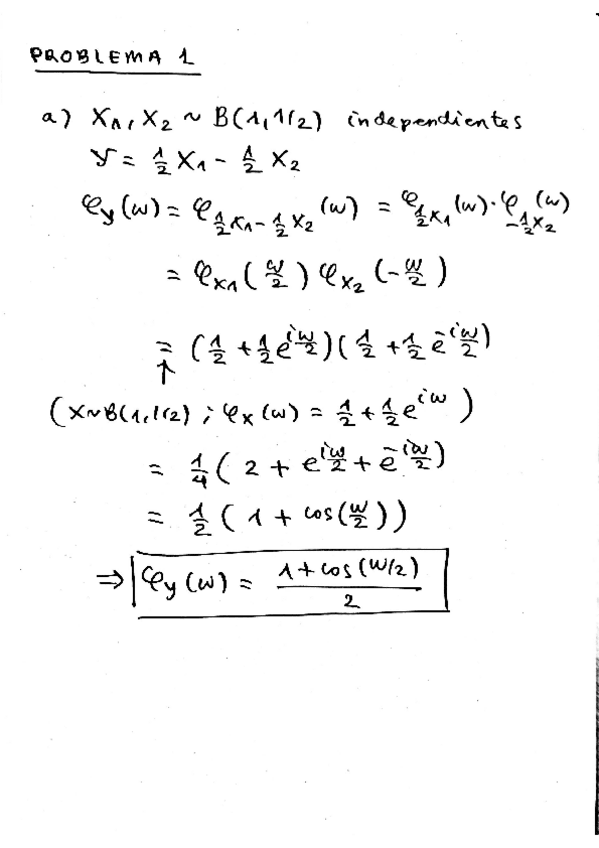 PROBLEMA 1
a) X₁, X₂ ~ B(1,1/2) independientes
Y = ½ X₁ - ½ X₂
φ_Y(ω) = φ_{½X₁-½X₂}(ω) = φ_{½X₁}(ω)·φ_{-½X₂}(ω)
= φ_{X₁}(ω/2) φ_{X₂}(-ω/2)
= (½ + ½e^{iω/2})(½ + ½e^{-iω/2})
↑
(X~B(1,1/2) ; φ_X(ω) = ½ + ½e^{iω})
= ¼(2 + e^{iω/2} + e^{-iω/2})
= ½(1 + cos(ω/2))
⇒ φ_Y(ω) = \frac{1+cos(ω/2)}{2}